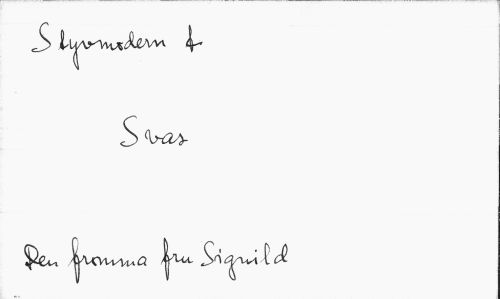 Styvmodern &
Svas
Den fromma fru Signild